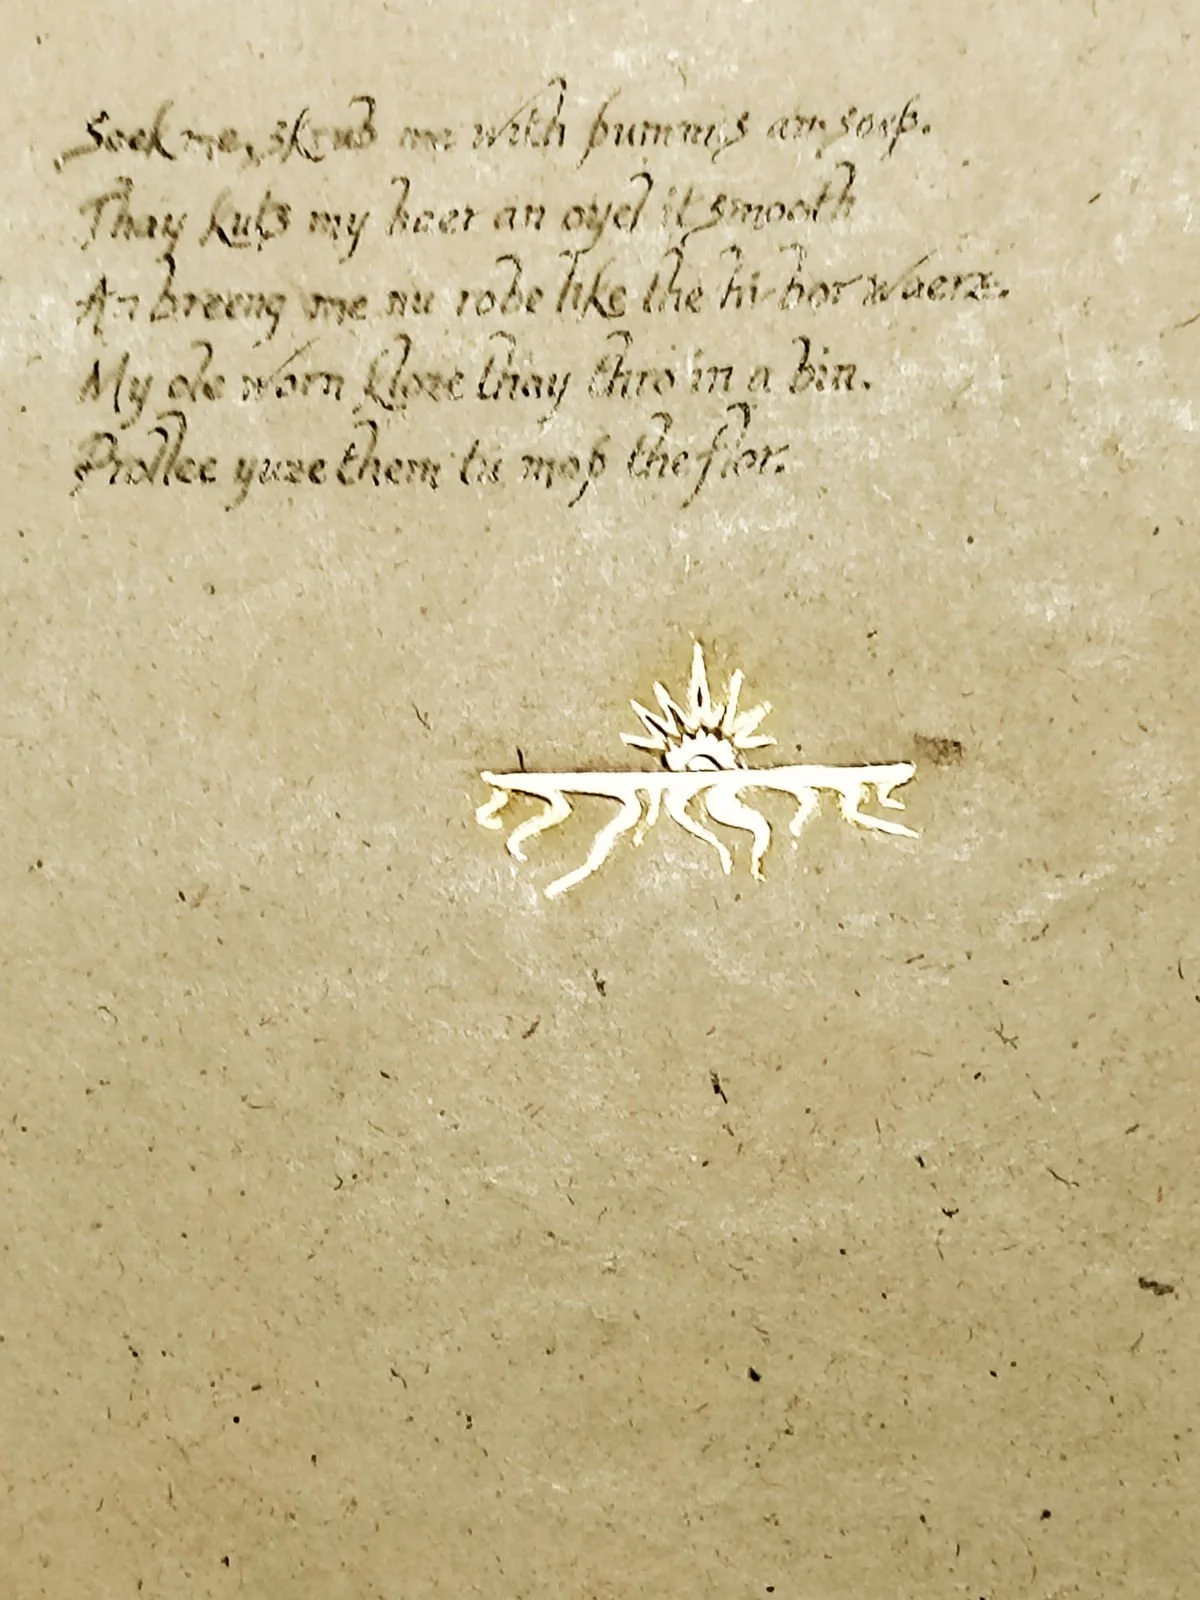 Soek me, skrub me with pummis an soep.
Thay kuts my haer an oyel it smooth
An breeng me nu robe like the hi-bor waerz.
My ole worn kloze thay thro in a bin.
Prollee yuze them tu mop the flor.